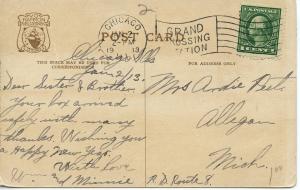 2
CHICAGO
1913
GRAND
CROSSING
STATION
POST CARD
THIS SPACE MAY BE USED FOR
CORRESPONDENCE
FOR ADDRESS ONLY
Chicago Ills
Jan 2/13.
Dear Sister & Brother
Your box arrived
safely with many
thanks. Wishing you
a Happy New Year.
With Love
Wm and Minnie
Mrs Andie
Allegan
Mich.
R.D. Route 8.